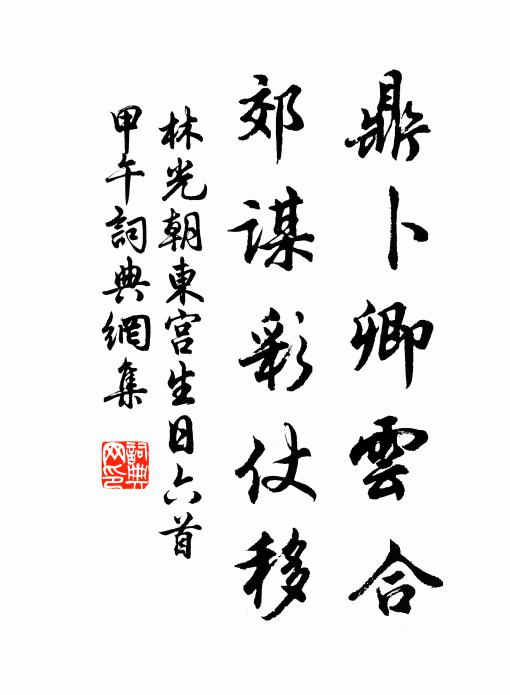 鼎卜卿雲合
郊謀彩仗移
林光朝東宮生日六首
甲午詞典網集
詞典網印